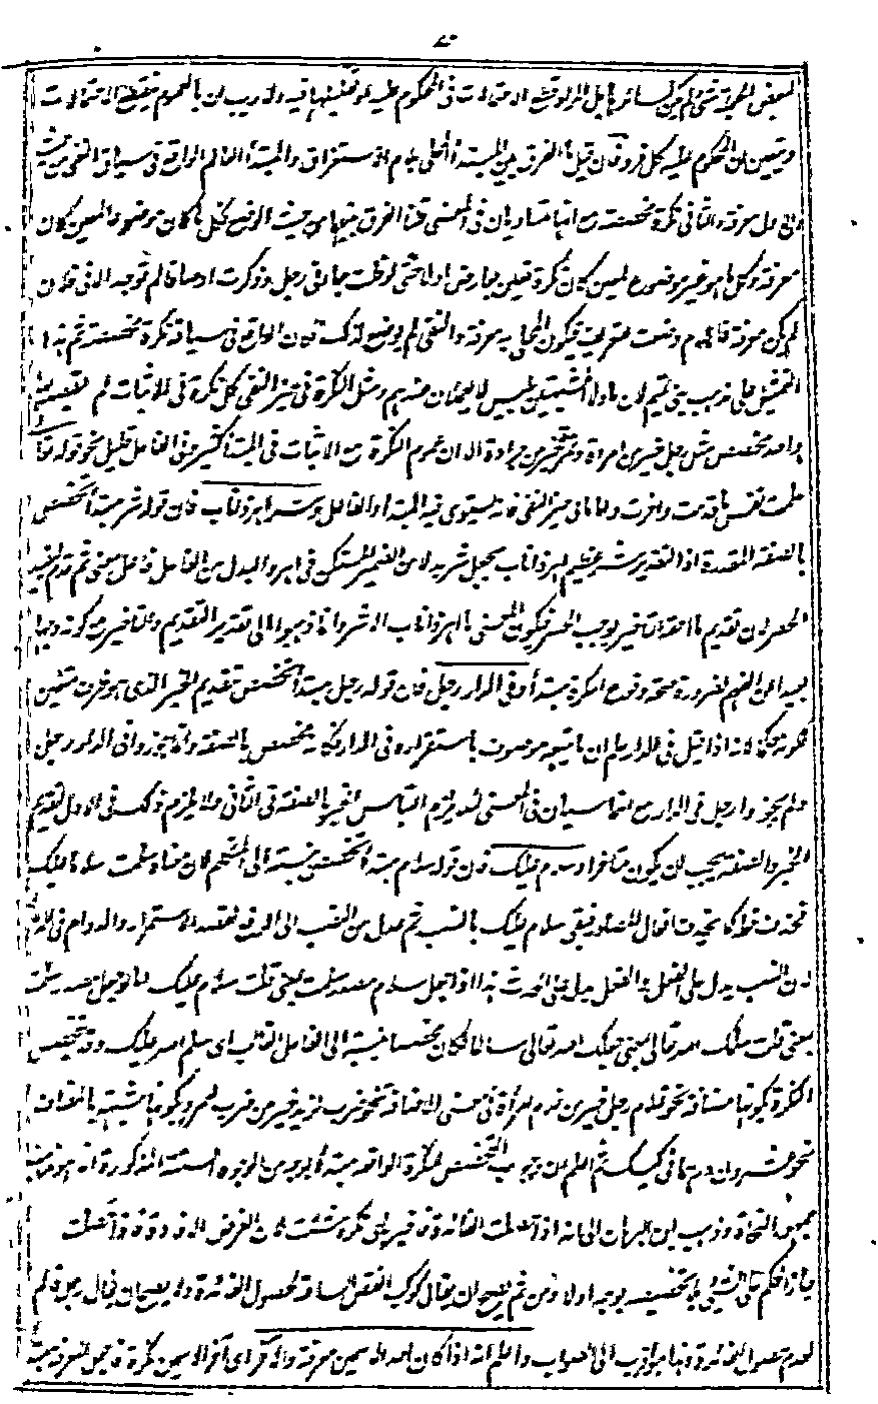 المحكوم عليه
ويتعين ان المحكوم عليه كل فرد فان قيل ما الفرق بين المبتدأ المحلى بلام الاستغراق والمبتدأ العام الواقع فى سياق النفى من حيث
ان الاول معرفة والثانى نكرة مخصصة مع انهما متساويان فى المعنى قلنا الفرق بينهما من حيث الوضع فكل ما كان موضوعا لمعين كان
معرفة وكل ما هو غير موضوع لمعين كان نكرة تعين بعارض او لا حتى لو قلت جاءنى رجل وذكرت اوصافا لم توجد الا فى فلان
لم يكن معرفة فاللام وضعت للتعريف فيكون المحلى به معرفة والنفى لم يوضع لذلك فكان الواقع فى سياقه نكرة مخصصة ثم هذا
التمثيل على مذهب بنى تميم لان ما ولا المشبهتين بليس لا يعملان عندهم ومثل النكرة فى حيز النفى كل نكرة فى الاثبات لم يقصد بها
واحد مخصص مثل رجل خير من امراة وتمرة خير من جرادة الا ان عموم النكرة مع الاثبات فى المبتدأ كثير وفى الفاعل قليل نحو قوله تعالى
علمت نفس ما قدمت واخرت واما فى حيز النفى فانه يستوى فيه المبتدأ والفاعل وشر اهر ذا ناب فان قوله شر مبتدأ تخصص
بالصفة المقدرة اذ التقدير شر عظيم اهر ذا ناب بجعل شر بدلا من الضمير المستكن فى اهر والبدل من الفاعل فاعل معنى ثم قدم ليفيد
الحصر لان تقديم ما حقه التاخير يوجب الحصر فيكون المعنى ما اهر ذا ناب الا شر وانما ذهبوا الى تقدير التقديم والتاخير مع كونه وجها
بعيدا عن الفهم لضرورة صحة وقوع النكرة مبتدأ وفى الدار رجل فان قوله رجل مبتدأ تخصص بتقديم الخبر الذى هو ظرف متعين
لكونه خبرا لانه اذا قيل فى الدار علم ان ما بعده موصوف باستقراره فى الدار فكانه مخصص بالصفة وانما يجوز فى الدار رجل
ولم يجز رجل فى الدار مع انهما سيان فى المعنى لئلا يلزم التباس الخبر بالصفة فى الثانى ولا يلزم ذلك فى الاول لتقديم
الخبر والصفة يجب ان يكون متاخرا وسلام عليك فان قوله سلام مبتدأ تخصص بنسبته الى المتكلم لان معناه سلمت سلاما عليك
فحذف فعله كما يحذف افعال المصادر فبقى سلاما عليك بالنصب ثم عدل من النصب الى الرفع لقصد الاستمرار والدوام فى الدعاء
لان النصب يدل على الفعل والفعل يدل على الحدوث هذا اذا جعل سلام مصدر سلمت بمعنى قلت سلام عليك اما لو جعل مصدر سلمت
بمعنى قلت سلمك الله تعالى بمعنى جعلك الله تعالى سالما لكان مخصصا بنسبته الى الفاعل الغائب اى سلم الله عليك وقد تخصص
النكرة بكونها مضافة نحو غلام رجل خير من غلام امرأة او فى معنى المضافة نحو ضرب لزيد خير من ضرب لعمرو وبكونها شبيهة بالمضاف
نحو عشرون درهما فى كيسك ثم اعلم ان وجوب التخصيص للنكرة الواقعة مبتدأ بوجه من الوجوه الستة المذكورة انما هو مذهب
جمهور النحاة وذهب ابن الدهان الى انه اذا حصلت الفائدة فاخبر عن اى نكرة شئت لان الغرض الافادة فاذا حصلت
جاز الحكم على الشئ بلا تخصيصه بوجه اولا ومن ثم يصح ان يقال كوكب انقض الساعة لحصول الفائدة ولا يصح ان يقال رجل قائم
لعدم حصول الفائدة وهذا هو اقرب الى الصواب واعلم انه اذا كان احد الاسمين معرفة والآخر اى آخر الاسمين نكرة فاجعل المعرفة مبتدأ